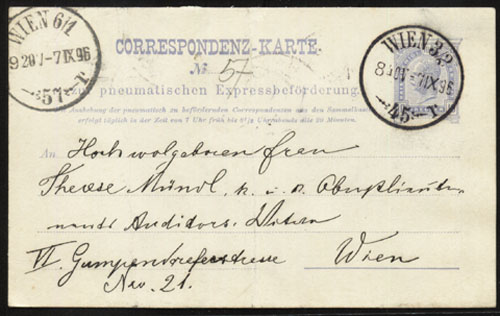 WIEN 6/1
9 20V -7 IX 96
57 T
WIEN 3/2
8 20V -7 IX 96
45 T
CORRESPONDENZ-KARTE
№ 57
zur pneumatischen Expressbeförderung.
Die Aushebung der pneumatisch zu befördernden Correspondenzen aus den Sammelkasten
erfolgt täglich in der Zeit von 7 Uhr früh bis 9½ Uhr Abends alle 20 Minuten.
An Hochwolgeboren Frau
Therese Mündl, k. u. k. Oberstlieute-
nants Auditors. Witwe
VI. Gumpendorferstrasse Wien
Nro. 21.